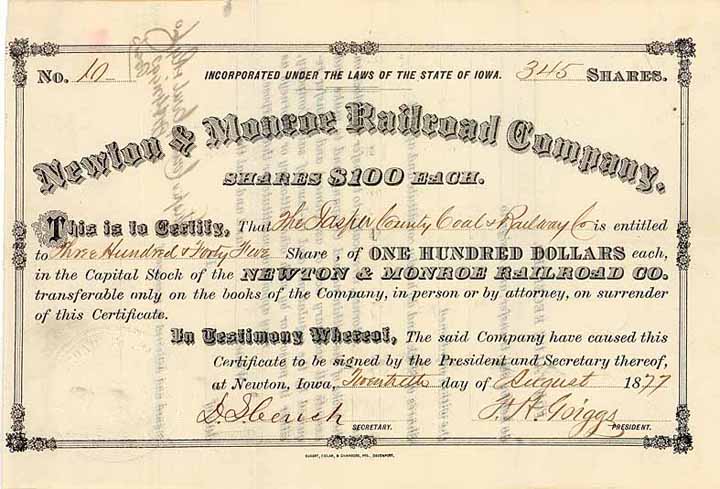 No. 10 INCORPORATED UNDER THE LAWS OF THE STATE OF IOWA. 345 SHARES.
Newton & Monroe Railroad Company.
SHARES $100 EACH.
This is to Certify, That The Jasper County Coal & Railway Co is entitled
to Three Hundred & Forty Five Share , of ONE HUNDRED DOLLARS each,
in the Capital Stock of the NEWTON & MONROE RAILROAD CO.
transferable only on the books of the Company, in person or by attorney, on surrender
of this Certificate.
In Testimony Whereof, The said Company have caused this
Certificate to be signed by the President and Secretary thereof,
at Newton, Iowa, day of August 1877
F. H. Griggs
SECRETARY. PRESIDENT.